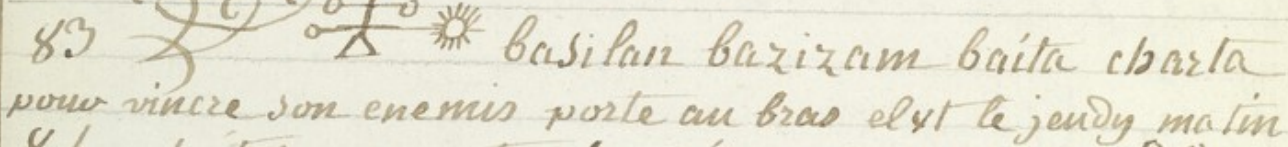 83 basilan bazizam baita charta
pour vincre son enemis porte au bras el et le jeudy matin